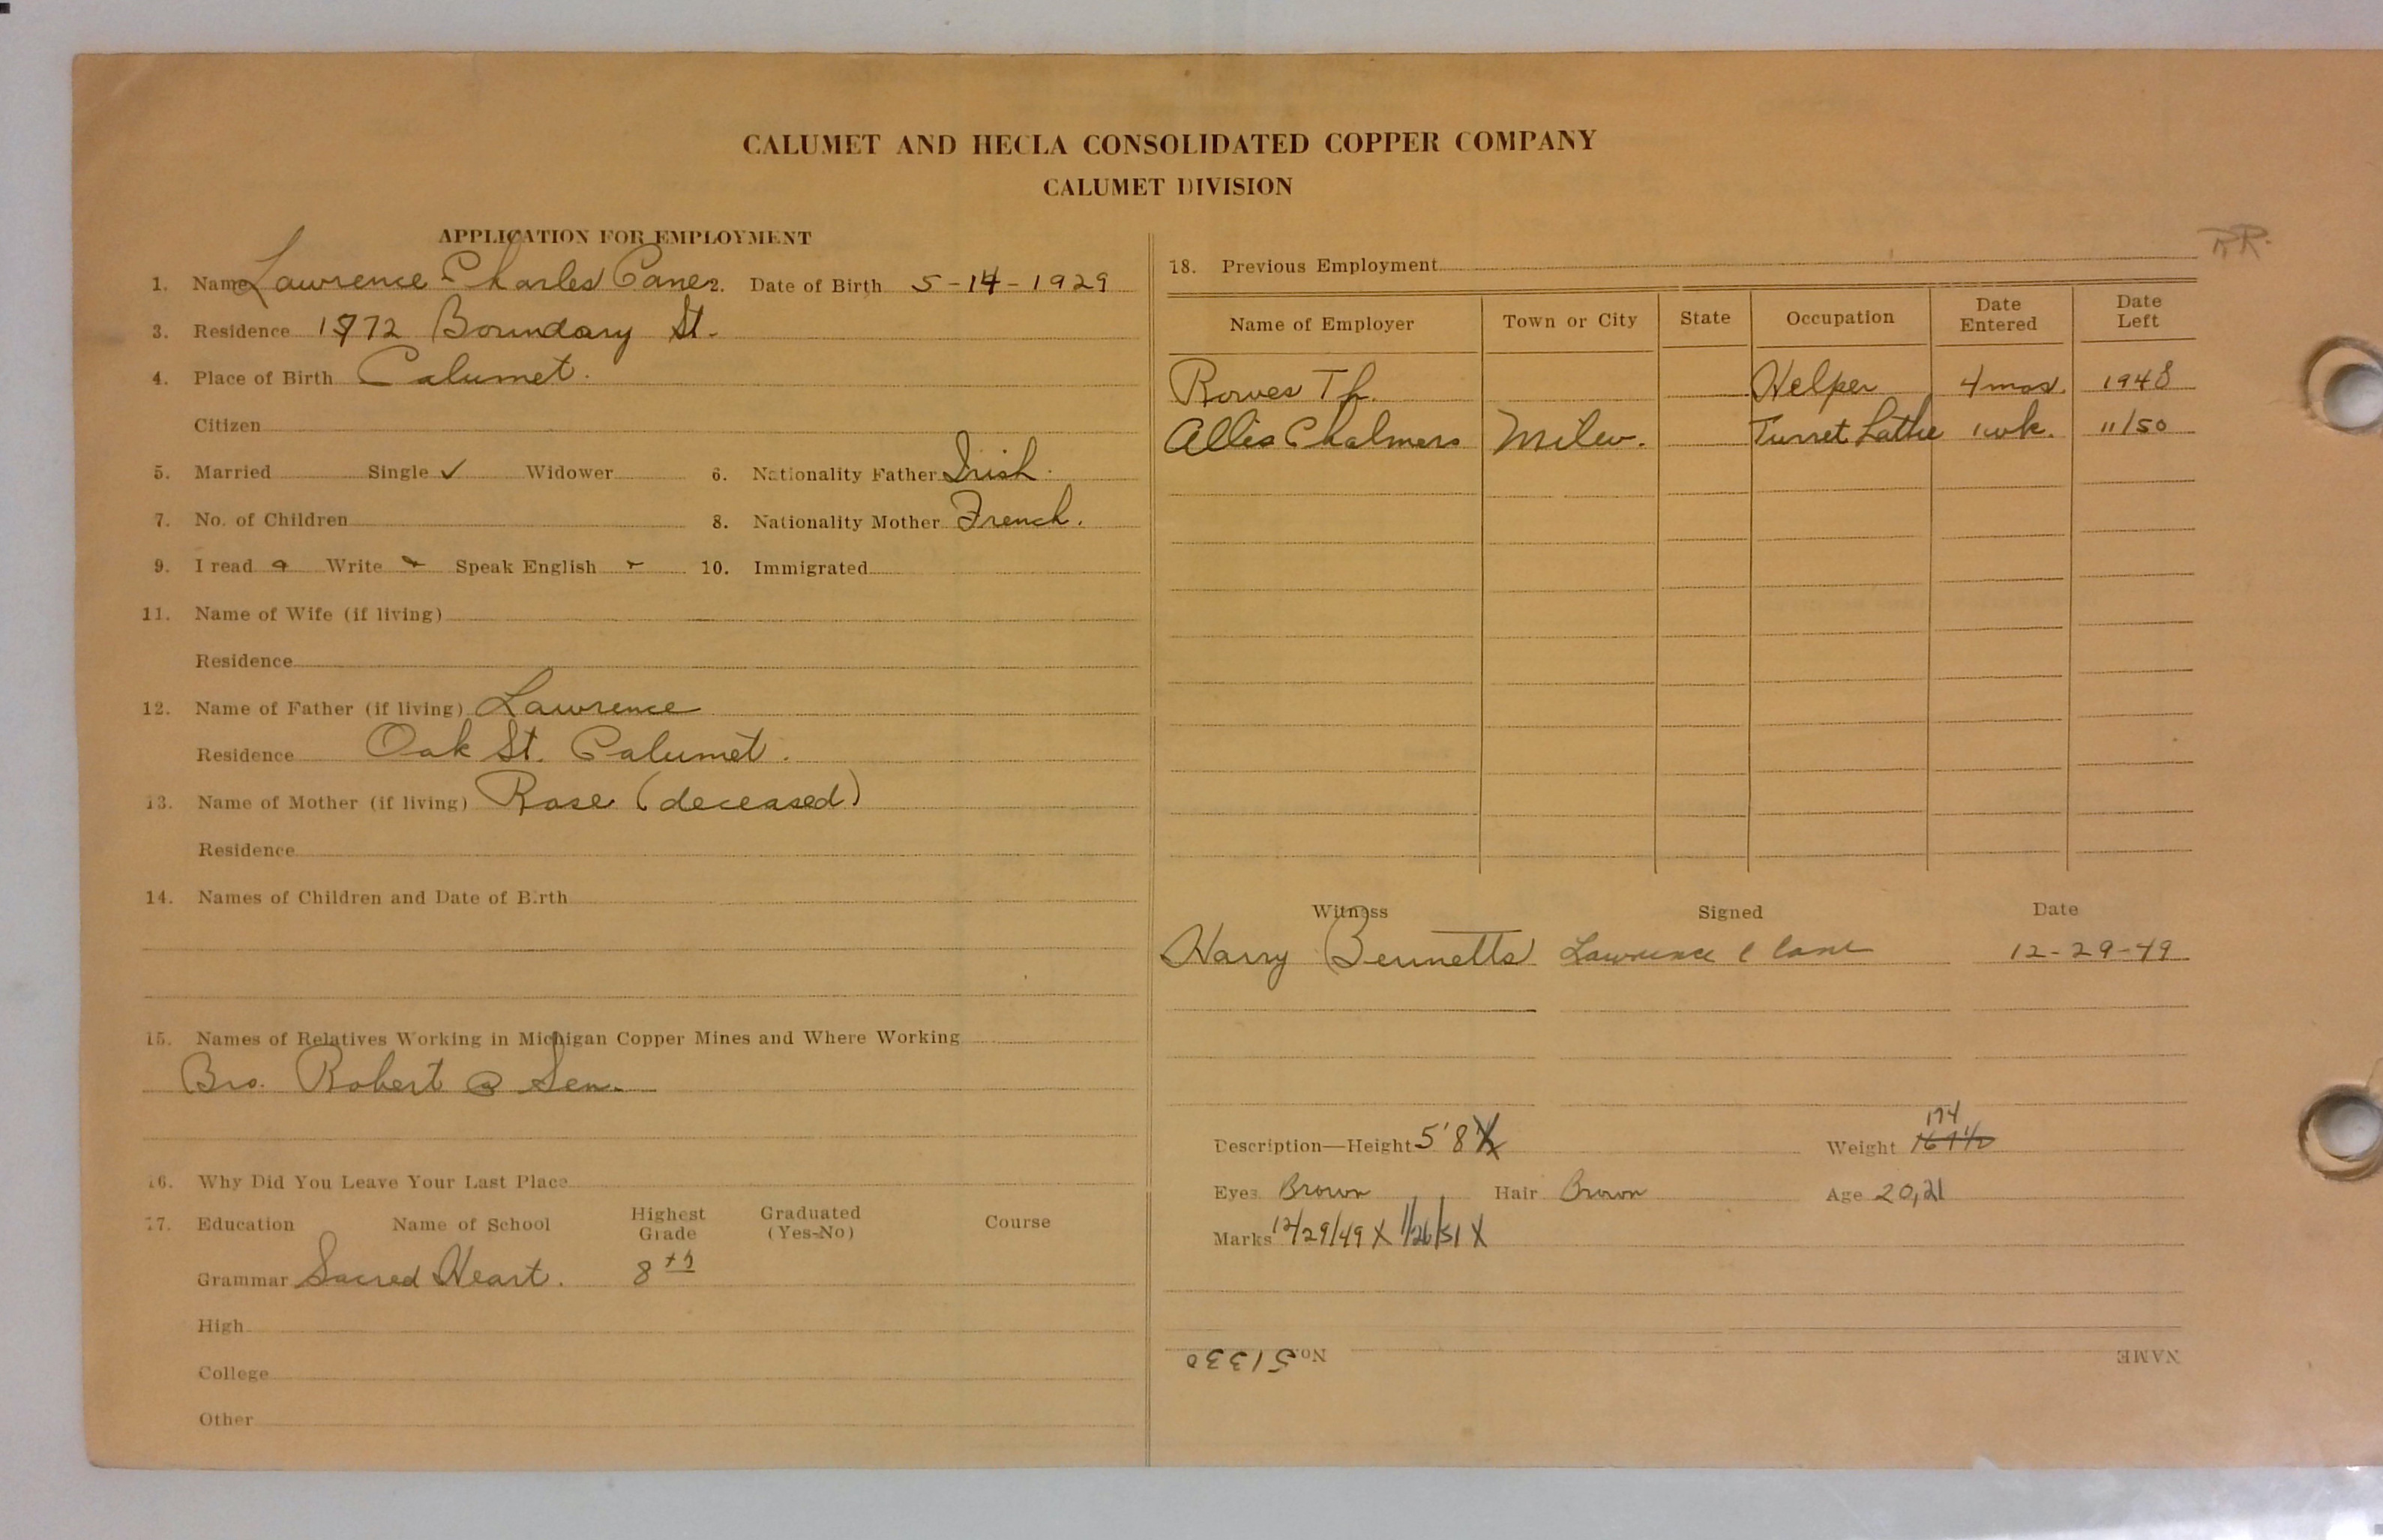 CALUMET AND HECLA CONSOLIDATED COPPER COMPANY
CALUMET DIVISION
APPLICATION FOR EMPLOYMENT
1. Name Lawrence Charles Cane 2. Date of Birth 5-14-1929
3. Residence 1972 Boundary St.
4. Place of Birth Calumet.
Citizen
5. Married Single ✓ Widower 6. Nationality Father Irish.
7. No. of Children 8. Nationality Mother French.
9. I read Write Speak English 10. Immigrated
11. Name of Wife (if living)
Residence
12. Name of Father (if living) Lawrence
Residence Oak St. Calumet.
13. Name of Mother (if living) Rose (deceased)
Residence
14. Names of Children and Date of Birth
15. Names of Relatives Working in Michigan Copper Mines and Where Working
Bro. Robert @ Sen.
16. Why Did You Leave Your Last Place
17. Education Name of School Highest Grade Graduated (Yes-No) Course
Grammar Sacred Heart. 8th
High
College
Other
RR.
18. Previous Employment
Name of Employer Town or City State Occupation Date Entered Date Left
Rowes Helper 4 mos. 1948
Allis Chalmers Milw. Turret Lathe 1 wk. 11/50
Witness Signed Date
Harry Bennetts Lawrence C Cane 12-29-49
Description—Height 5'8 1/2 174
Weight 169 1/2
Eyes Brown Hair Brown Age 20, 21
Marks 12/29/49 X 1/26/51 X
No. 51330 NAME